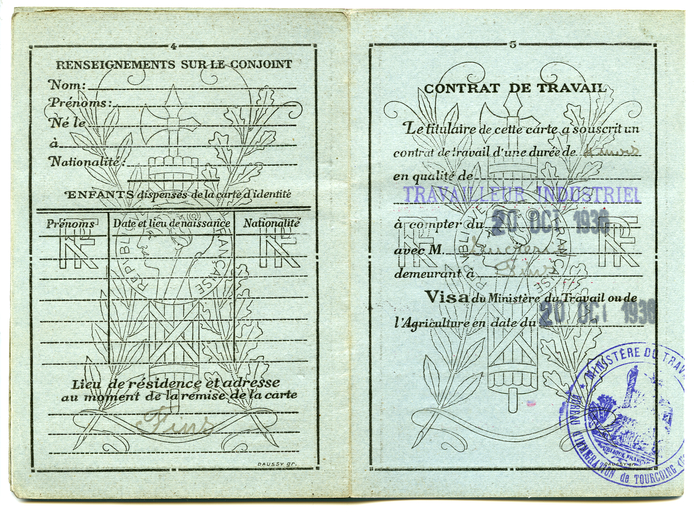 4
RENSEIGNEMENTS SUR LE CONJOINT
Nom:
Prénoms:
Né le
à
Nationalité:
ENFANTS dispensés de la carte d'identité
Prénoms Date et lieu de naissance Nationalité
RF RF
RÉPUBLIQUE FRANÇAISE
Lieu de résidence et adresse
au moment de la remise de la carte
Fins
DAUSSY gr.
5
CONTRAT DE TRAVAIL
Le titulaire de cette carte a souscrit un
contrat de travail d'une durée de
en qualité de
TRAVAILLEUR INDUSTRIEL
à compter du 20 OCT 1930
avec M.
demeurant à Fins
RF RF
Visa du Ministère du Travail ou de
l'Agriculture en date du 20 OCT 1930
MINISTÈRE DU TRAV
BUREAU D'IMMIGRATION de TOURCOING